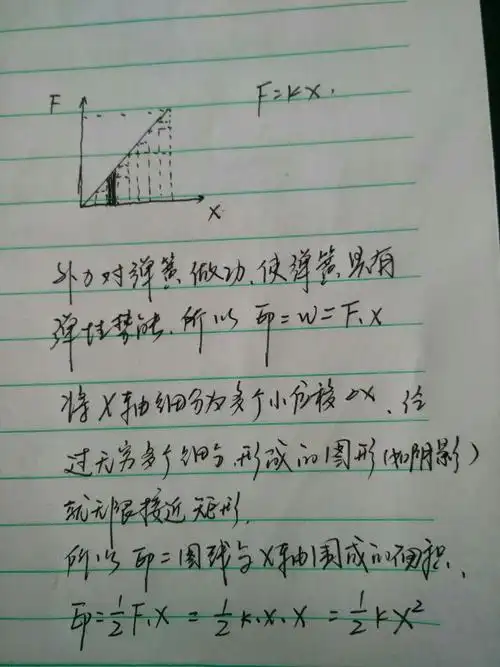 F
F=kx.
x
外力对弹簧做功,使弹簧具有
弹性势能,所以 Ep=W=F·x
将X轴细分为多个小位移△x,经
过无穷多个细分,形成的图形(如阴影)
就无限接近矩形,
所以 Ep=图线与X轴围成的面积,
Ep=½F·x = ½k·x·x = ½kx²